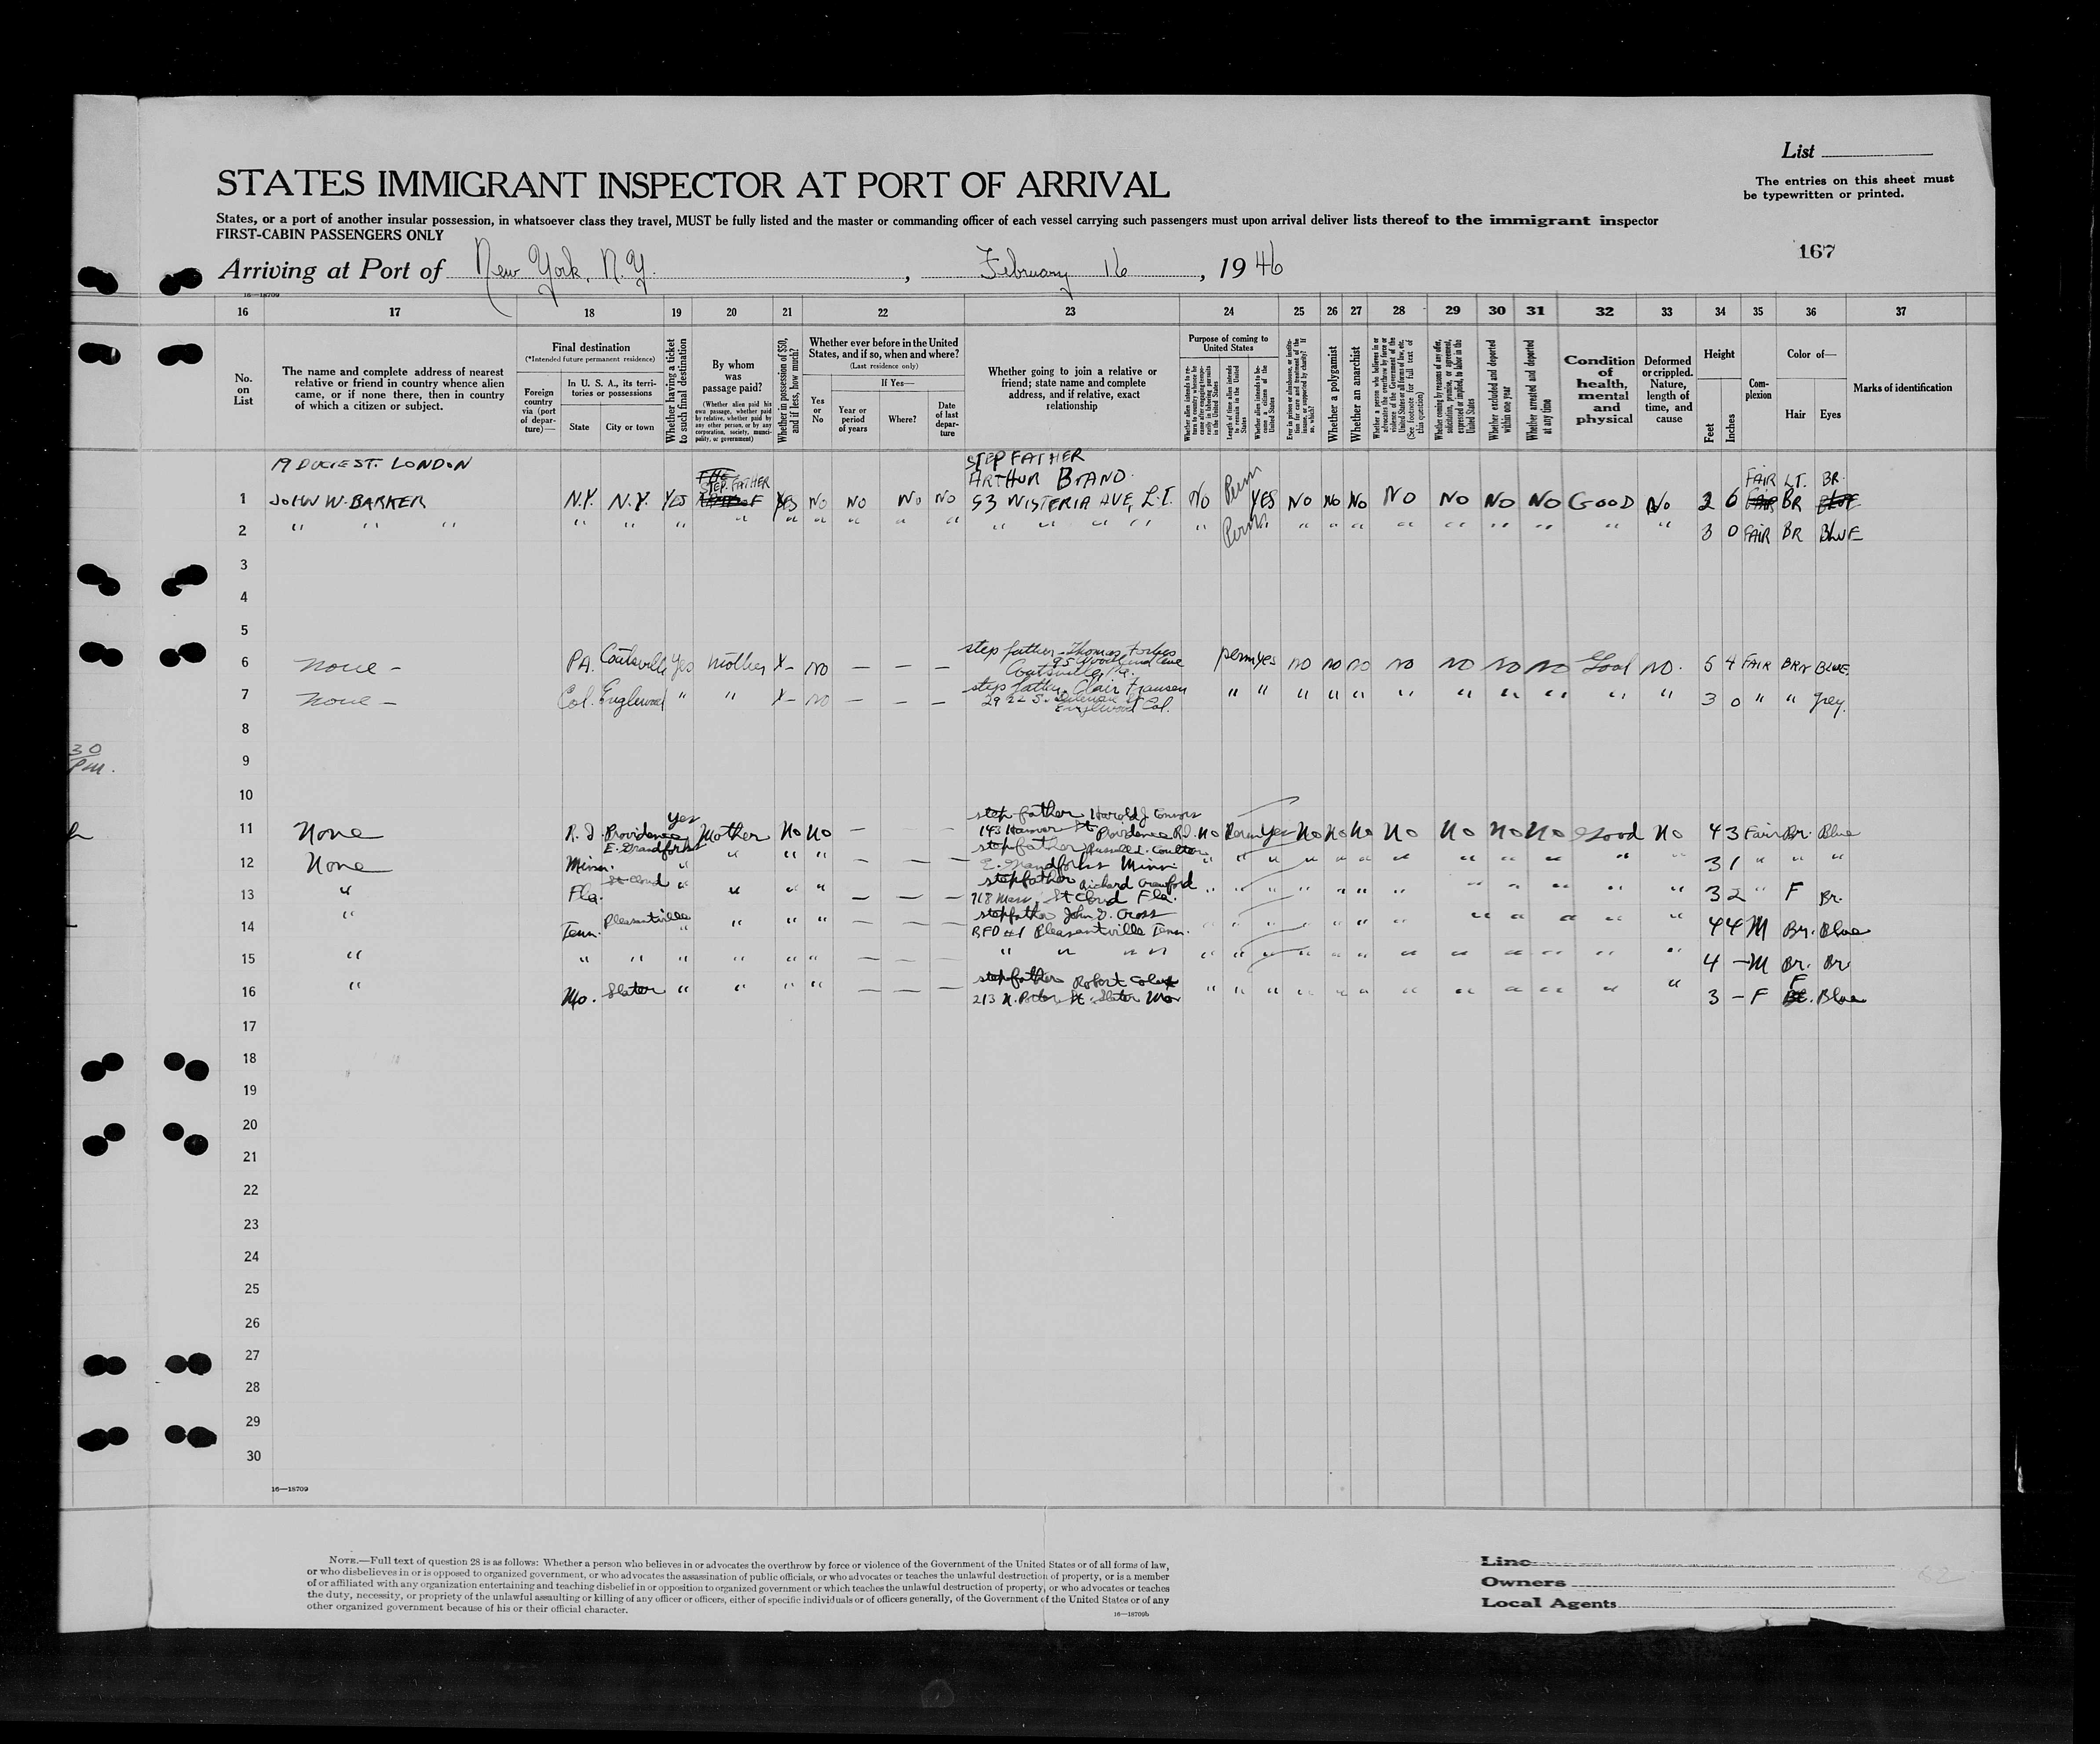 List
The entries on this sheet must
be typewritten or printed.
STATES IMMIGRANT INSPECTOR AT PORT OF ARRIVAL
States, or a port of another insular possession, in whatsoever class they travel, MUST be fully listed and the master or commanding officer of each vessel carrying such passengers must upon arrival deliver lists thereof to the immigrant inspector
FIRST-CABIN PASSENGERS ONLY
167
Arriving at Port of New York, N.Y. , February 16 , 1946
16—18709
16 17 18 19 20 21 22 23 24 25 26 27 28 29 30 31 32 33 34 35 36 37
No. on List
The name and complete address of nearest relative or friend in country whence alien came, or if none there, then in country of which a citizen or subject.
Final destination
(*Intended future permanent residence)
Foreign country via (port of departure)—
In U. S. A., its territories or possessions
State
City or town
Whether having a ticket to such final destination
By whom was passage paid?
(Whether alien paid his own passage, whether paid by relative, whether paid by any other person, or by any corporation, society, municipality, or government)
Whether in possession of $50, and if less, how much?
Whether ever before in the United States, and if so, when and where?
(Last residence only)
Yes or No
If Yes—
Year or period of years
Where?
Date of last departure
Whether going to join a relative or friend; state name and complete address, and if relative, exact relationship
Purpose of coming to United States
Length of time alien intends to remain in the United States
Whether alien intends to become a citizen of the United States
Whether a polygamist
Whether an anarchist
Whether excluded and deported within one year
Whether arrested and deported at any time
Condition of health, mental and physical
Deformed or crippled. Nature, length of time, and cause
Height
Feet
Inches
Complexion
Color of—
Hair
Eyes
Marks of identification
STEP FATHER
19 DUCIE ST. LONDON STEP. FATHER ARTHUR BRAND. Perm FAIR LT. BR.
1 JOHN W. BARKER N.Y. N.Y. YES YES NO NO NO NO 53 WISTERIA AVE, L.I. NO YES NO NO NO NO NO NO NO GOOD NO 2 6 BR
2 " " " " " " " " " " " " " " " " " Perm. " " " " " " " " " 3 0 FAIR BR BLUE
3
4
5
step father - Thomas Forbes
6 none - PA. yes mother X- no — — — 95 perm yes no no no no no no no Good no. 5 4 FAIR BRN BLUE
step father, Clair Fransen
7 none - Col. Englewood " " X- no — — — " " " " " " " " " " " 3 0 " " grey.
Englewood Col.
8
30
PM.
9
10
yes step father Harold J Connors
11 None R.I. Providence Mother No No — — — 143 Hanover St Providence R.I. no Perm yes No No No No No No No Good No 4 3 Fair Br. Blue
E. Grandforks stepfather Russell L. Coulter
12 None Minn. " " " " — — — E. Grandforks Minn. " " " " " " " " " " " " 3 1 " " "
St Cloud stepfather Richard Crawford
13 " Fla. " " " " — — — 718 Mass. St Cloud Fla. " " " " " " " " " " " " 3 2 " F Br.
Pleasantville stepfather John D. Cross
14 " Tenn. " " " " — — — RFD #1 Pleasantville Tenn. " " " " " " " " " " " " 4 4 M Br. Blue
15 " " " " " " " — — — " " " " " " " " " " " " " " " " 4 - M Br. Br
stepfather Robert F
16 " Mo. Slater " " " " — — — 213 N. Porter St. Slater Mo " " " " " " " " " " " " 3 - F Blue
17
18
19
20
21
22
23
24
25
26
27
28
29
30
16—18709
NOTE.—Full text of question 28 is as follows: Whether a person who believes in or advocates the overthrow by force or violence of the Government of the United States or of all forms of law,
or who disbelieves in or is opposed to organized government, or who advocates the assassination of public officials, or who advocates or teaches the unlawful destruction of property, or is a member
of or affiliated with any organization entertaining and teaching disbelief in or opposition to organized government or which teaches the unlawful destruction of property, or who advocates or teaches
the duty, necessity, or propriety of the unlawful assaulting or killing of any officer or officers, either of specific individuals or of officers generally, of the Government of the United States or of any
other organized government because of his or their official character.
16—18709b
Line
Owners
Local Agents